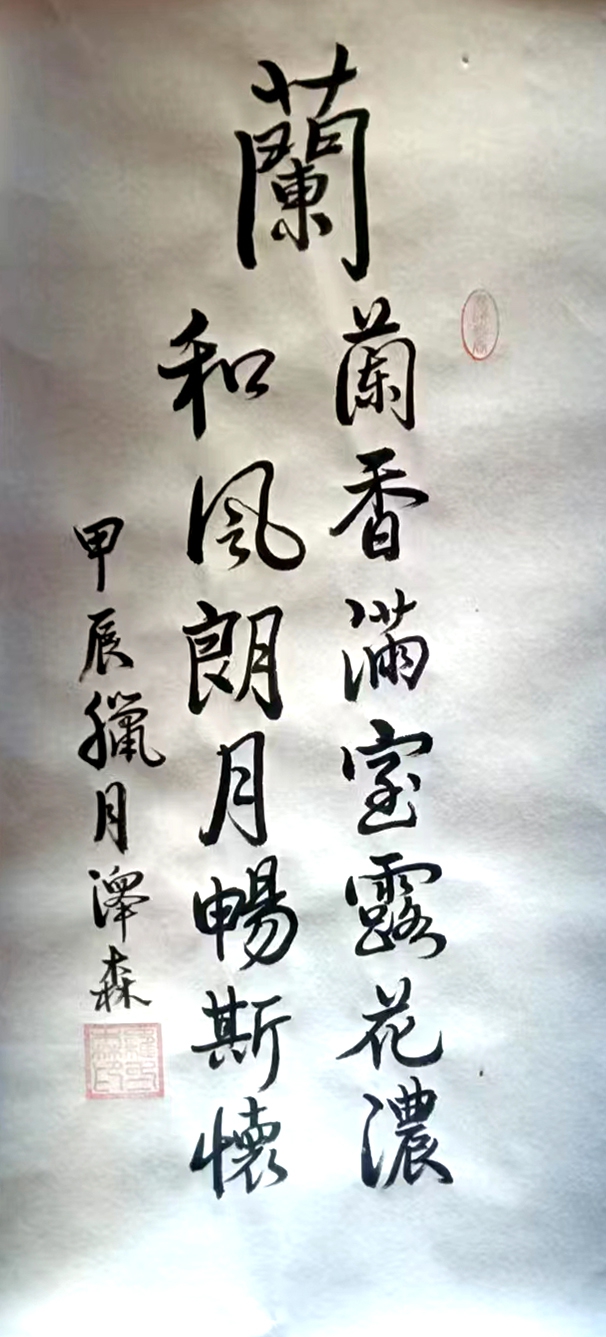 蘭
蘭香滿室露花濃
和風朗月暢斯懷
甲辰臘月澤森